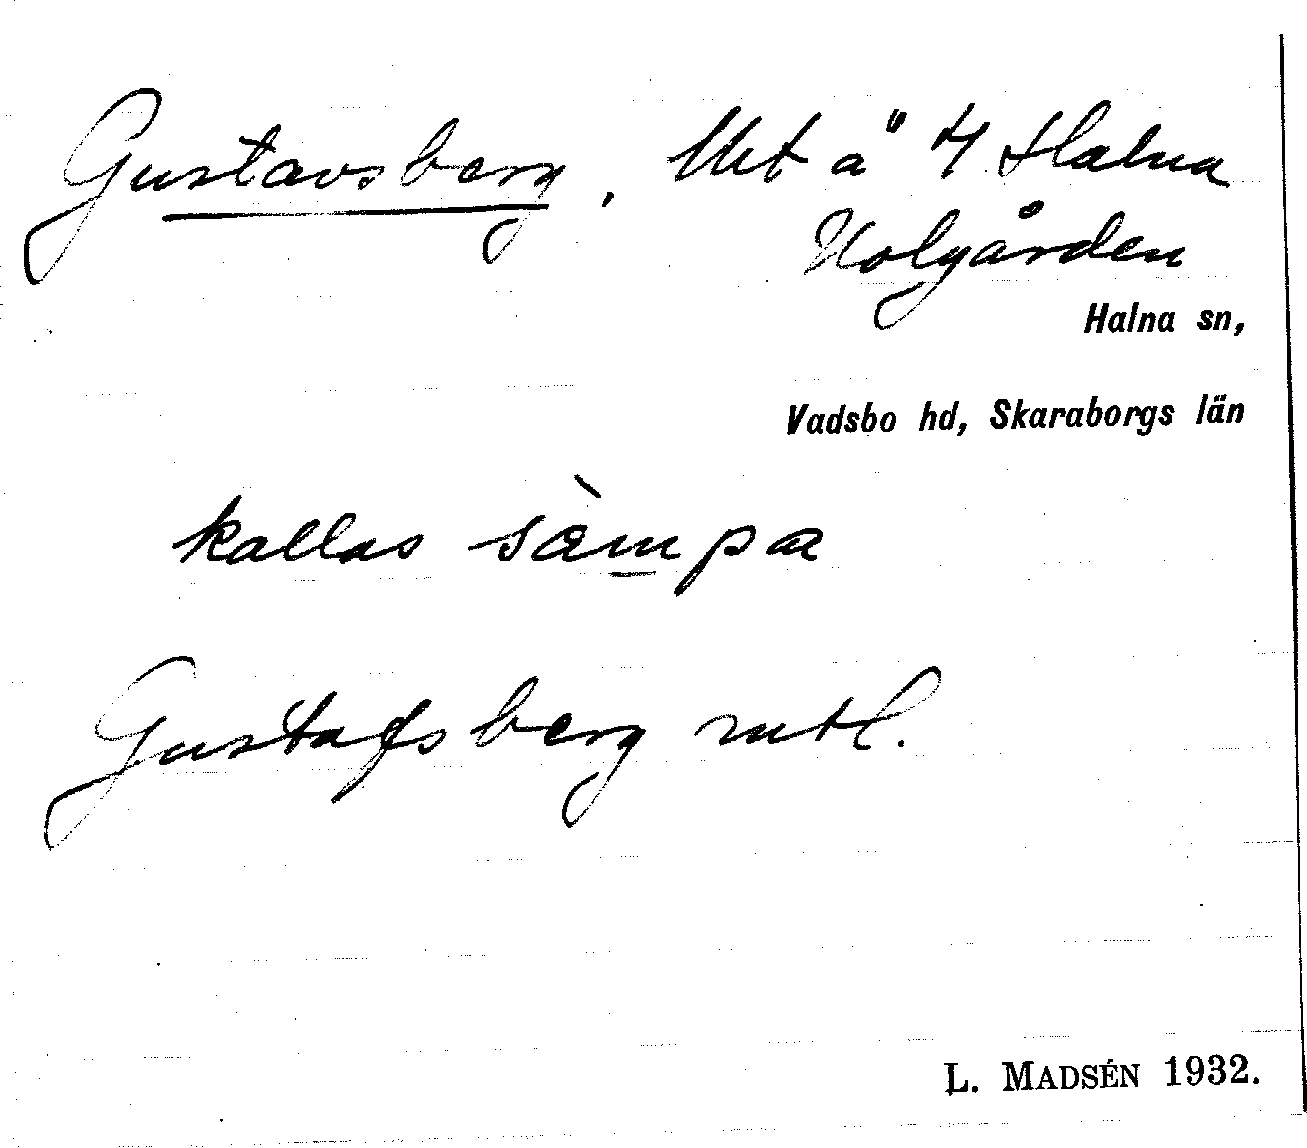 Gustavsberg, Uet å "4 Halna
Holgården
Halna sn,
Vadsbo hd, Skaraborgs län
kallas sàmpa
Gustafsberg mtl.
L. MADSÉN 1932.